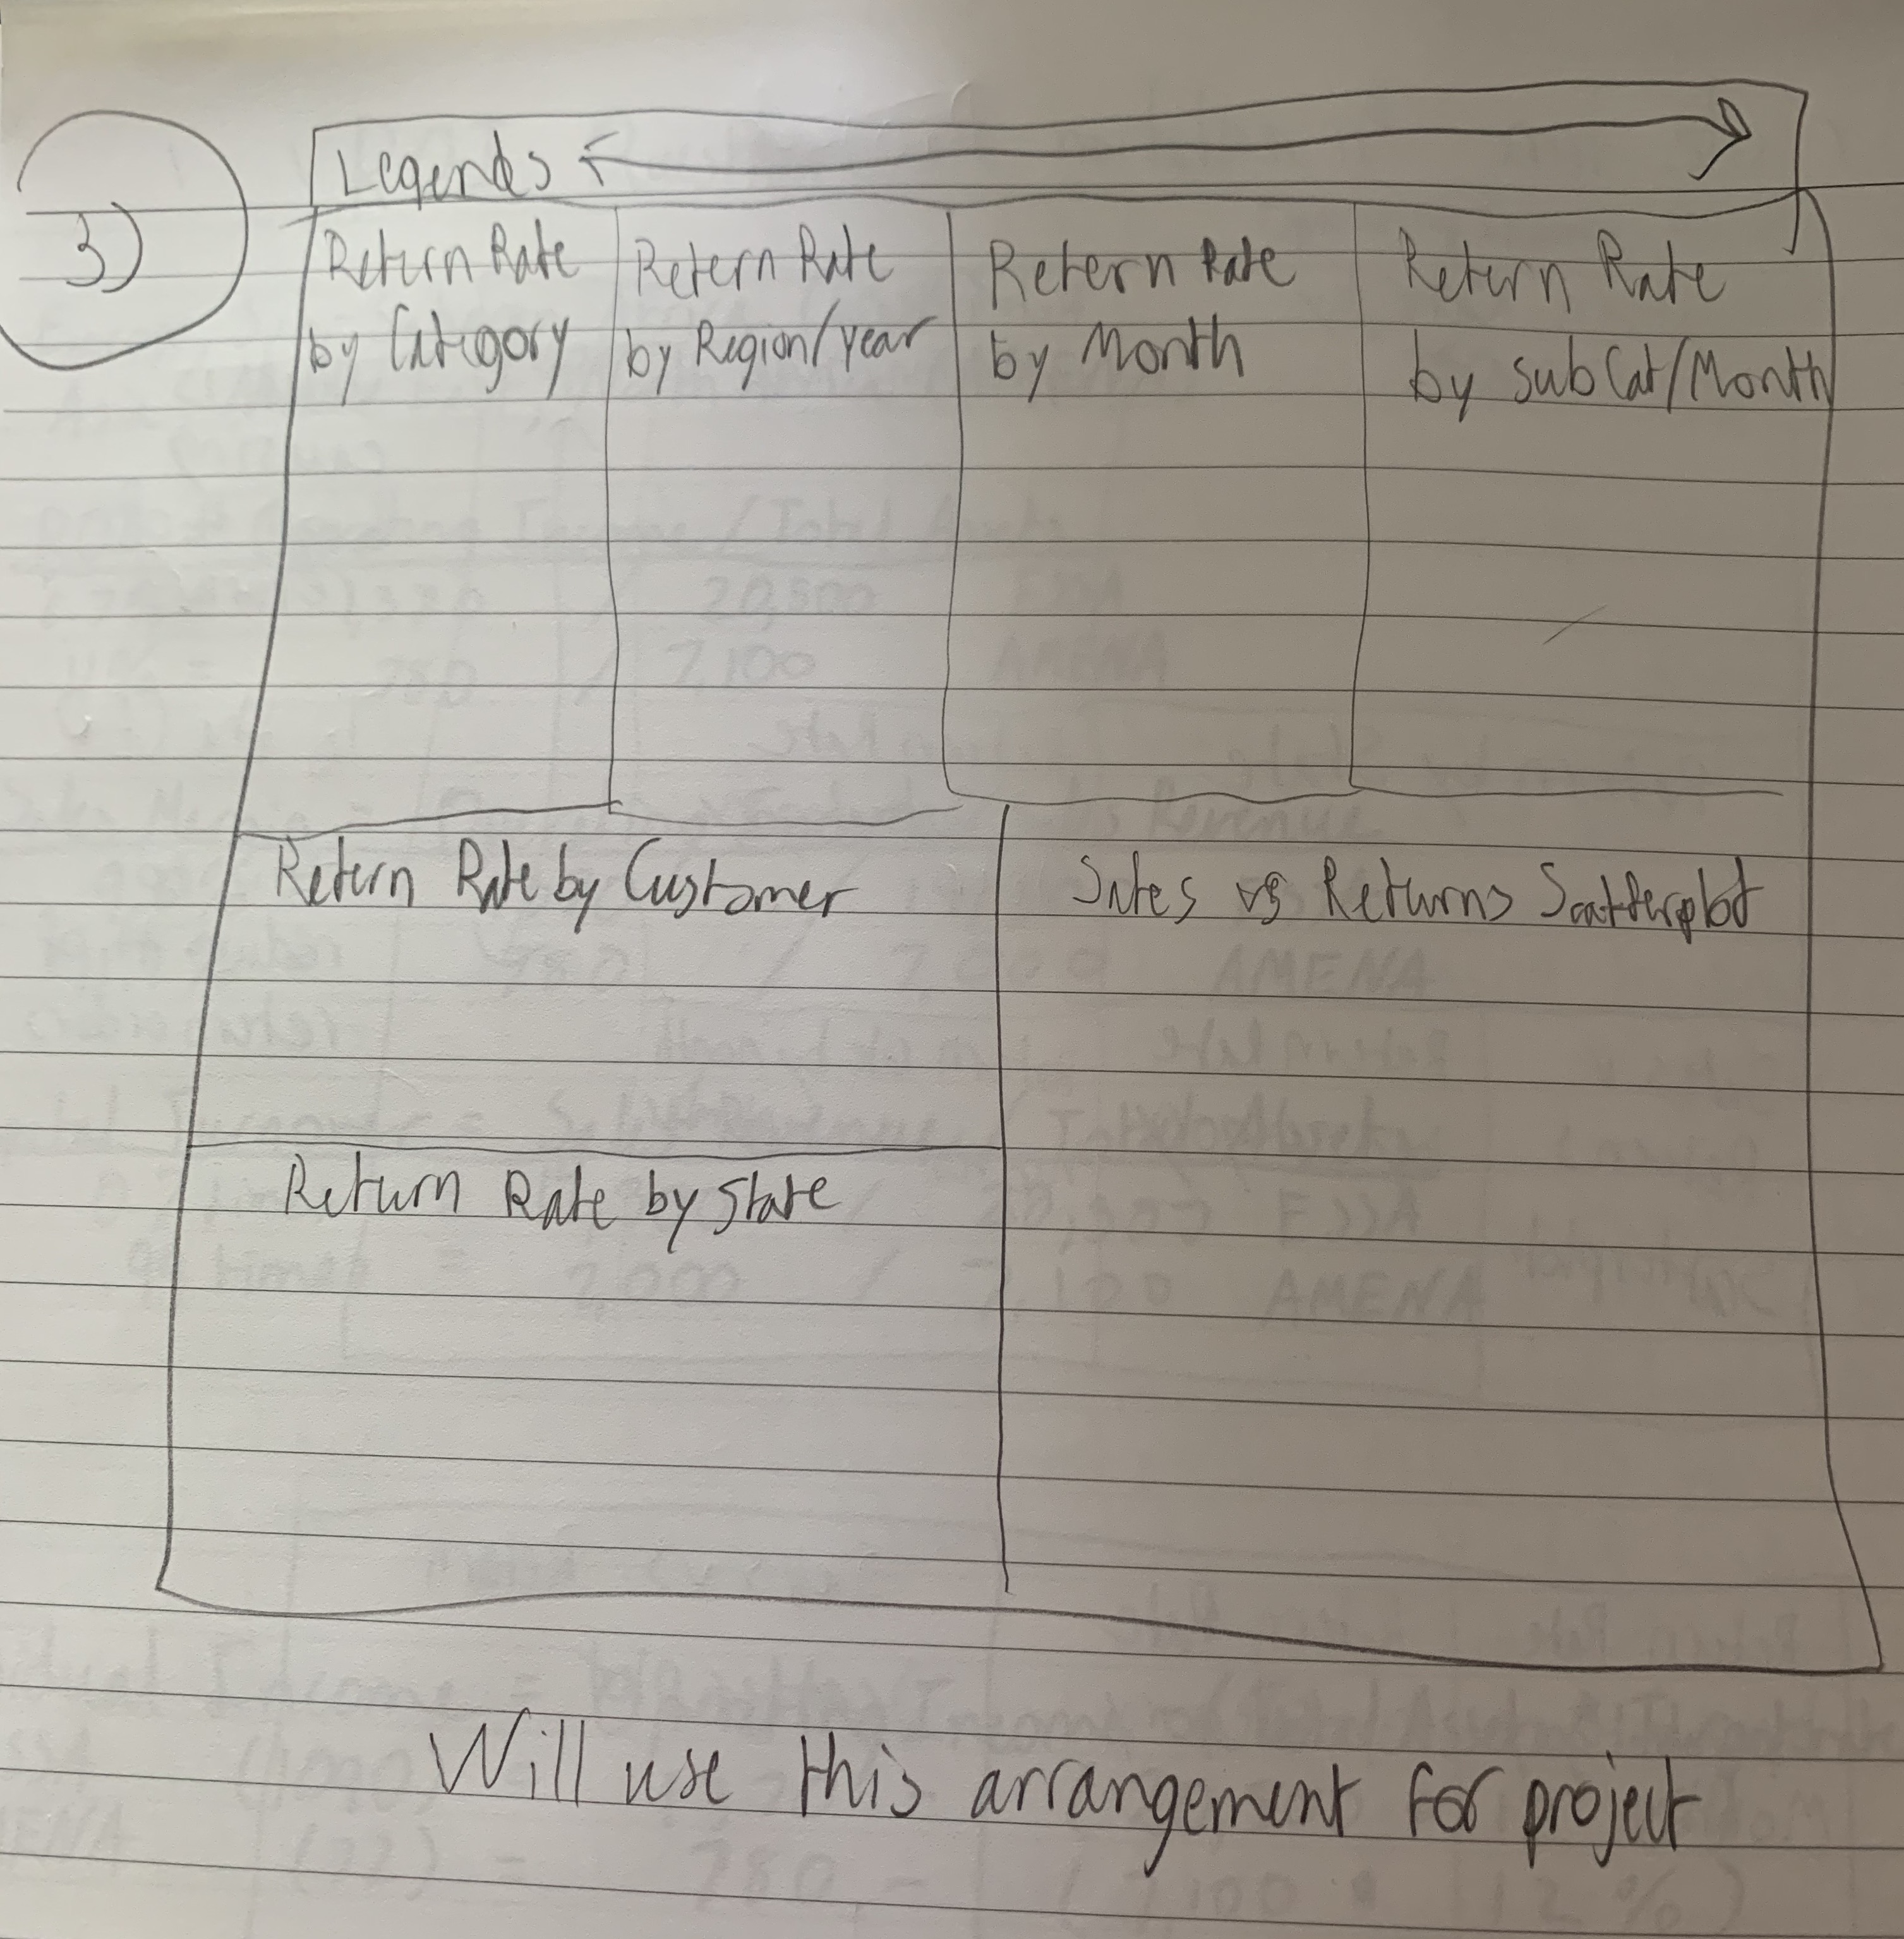 3)
Legends
Return Rate
by Category
Retern Rate
by Region/year
Retern Rate
by Month
Return Rate
by subCat/Month
Return Rate by Customer
Sales vs Returns Scatterplot
Return Rate by State
Will use this arrangement for project